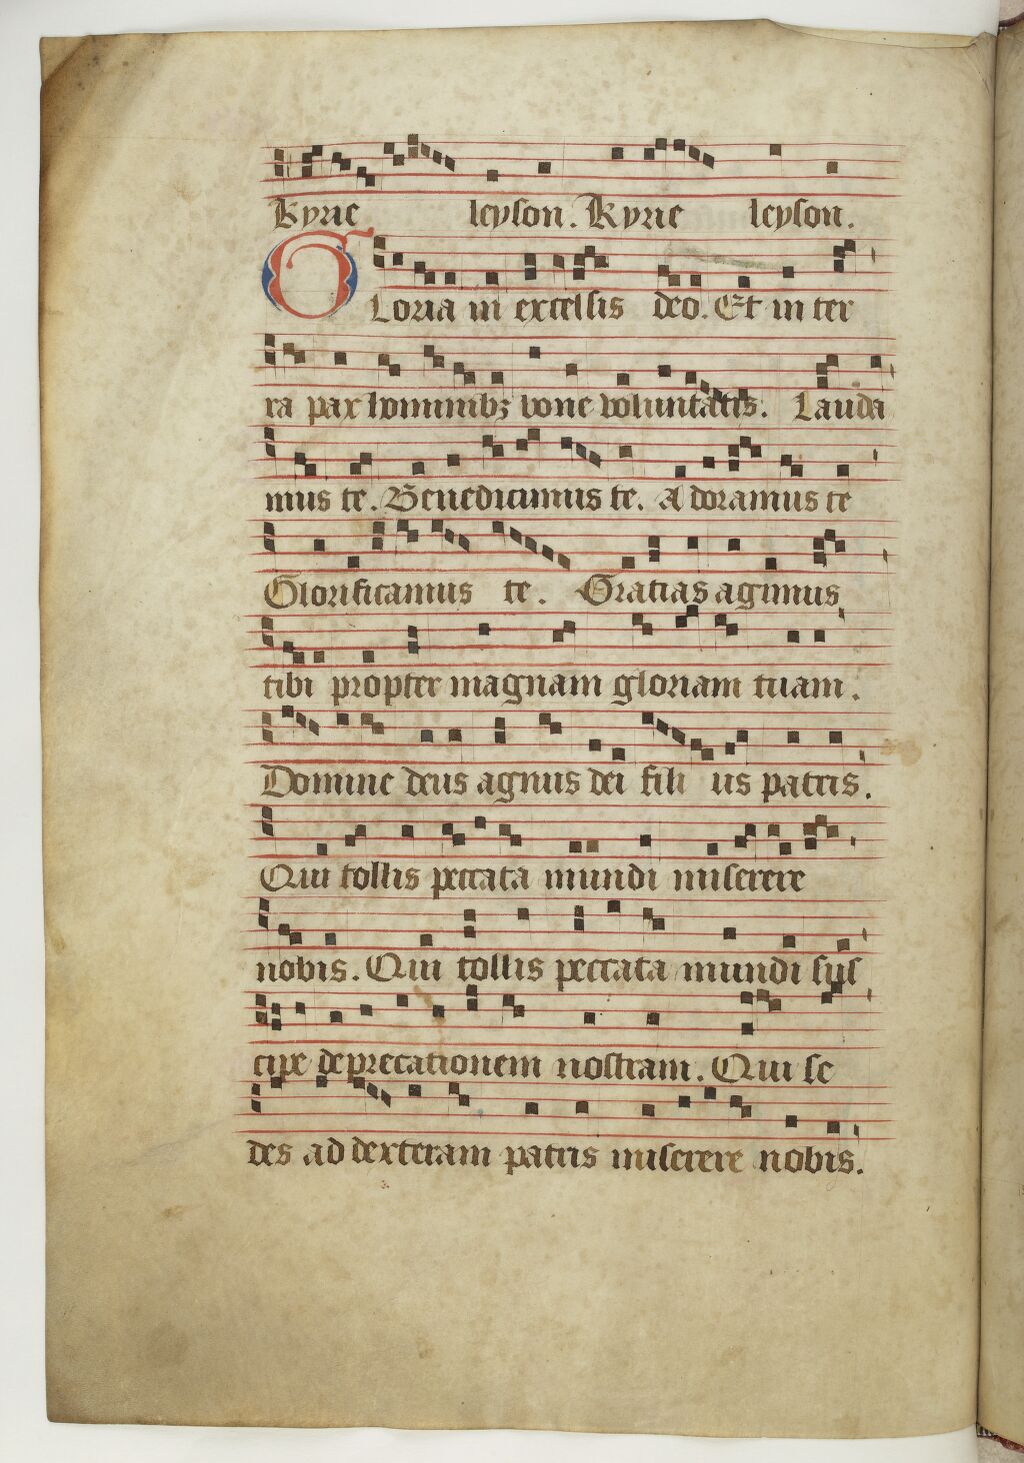 Kyrie leyson. Kyrie leyson.
Gloria in excelsis deo. Et in ter
ra pax hominibꝫ bone voluntatis. Lauda
mus te. Benedicimus te. A doramus te
Glorificamus te. Gratias agimus
tibi propter magnam gloriam tuam.
Domine deus agnus dei fili us patris.
Qui tollis peccata mundi miserere
nobis. Qui tollis peccata mundi sus
cipe deprecationem nostram. Qui se
des ad dexteram patris miserere nobis.